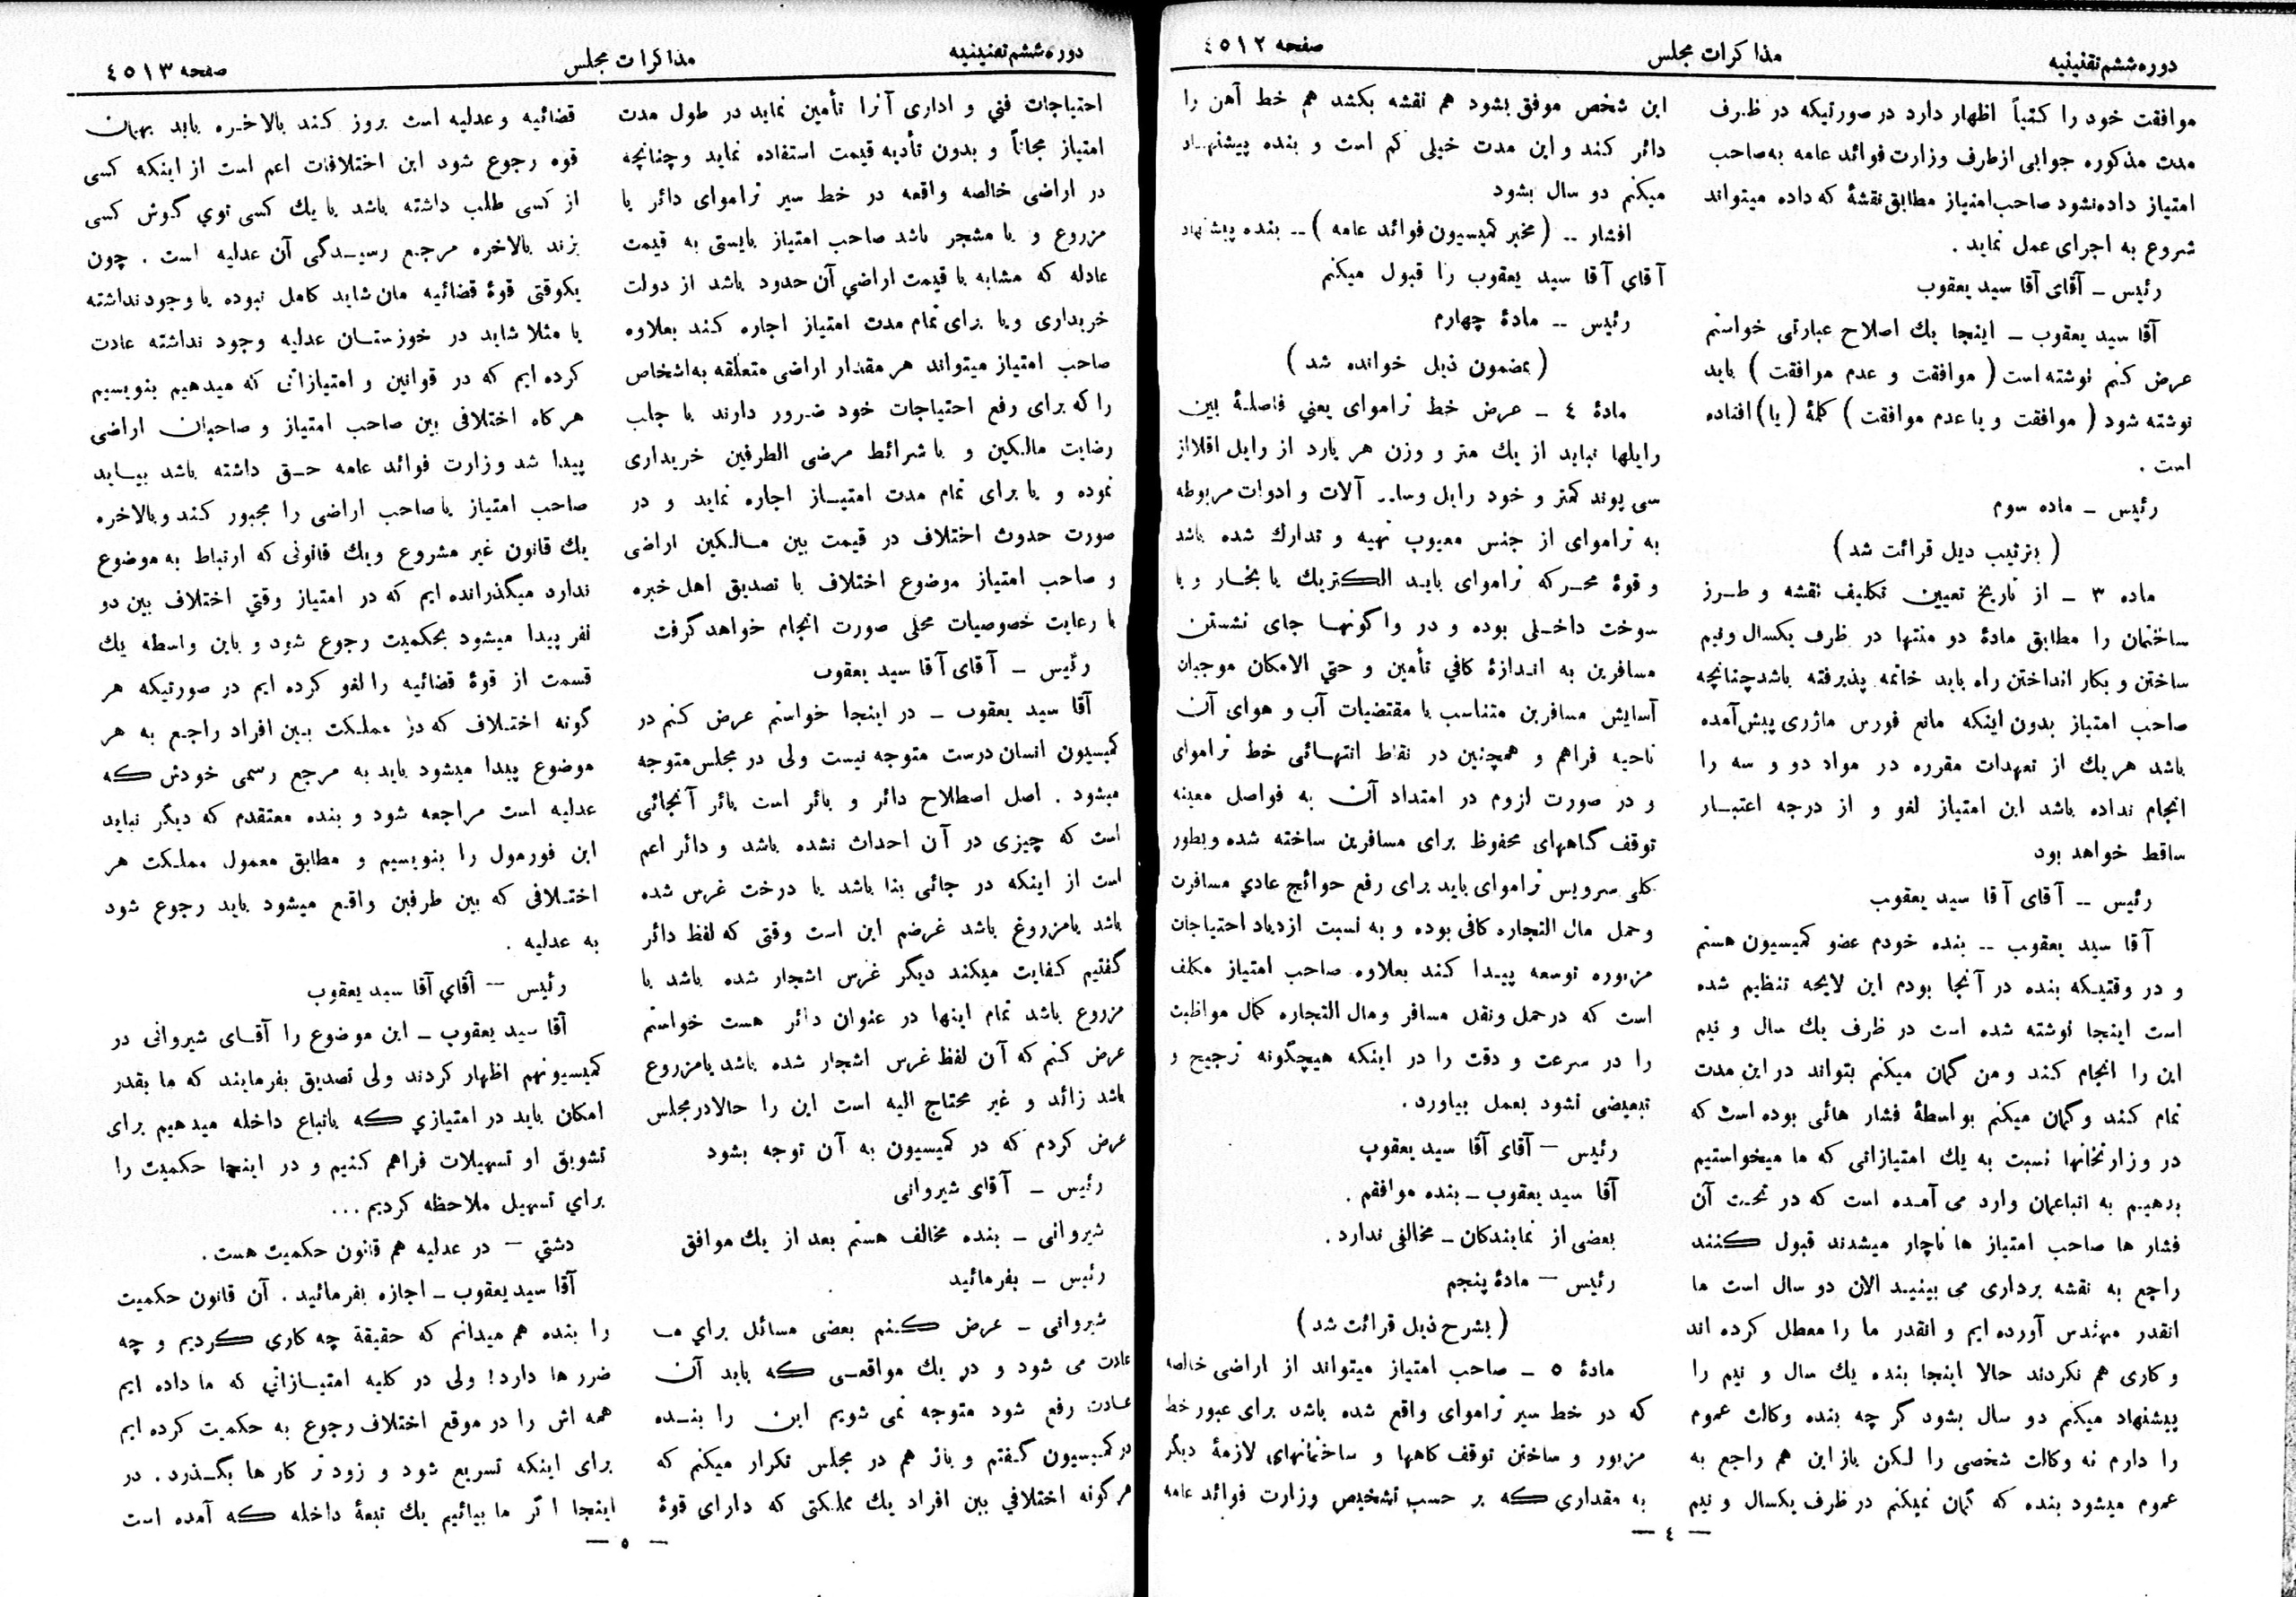 دوره ششم تقنینیه
مذاکرات مجلس
صفحه ٤٥١٢
موافقت خود را کتباً اظهار دارد در صورتیکه در ظرف
مدت مذکوره جوابی از طرف وزارت فوائد عامه به صاحب
امتیاز داده نشود صاحب امتیاز مطابق نقشهٔ که داده میتواند
شروع به اجرای عمل نماید .
رئیس ـ آقای آقا سید یعقوب
آقا سید یعقوب ـ اینجا یك اصلاح عبارتی خواستم
عرض کنم نوشته است ( موافقت و عدم موافقت ) باید
نوشته شود ( موافقت و یا عدم موافقت ) کلمهٔ (یا) افتاده
است .
رئیس ـ ماده سوم
( بترتیب ذیل قرائت شد )
ماده ٣ ـ از تاریخ تعیین تکلیف نقشه و طرز
ساختمان را مطابق مادهٔ دو منتها در ظرف یکسال و نیم
ساختن و بکار انداختن راه باید خاتمه پذیرفته باشد چنانچه
صاحب امتیاز بدون اینکه مانع فورس ماژری پیش آمده
باشد هر یك از تعهدات مقرره در مواد دو و سه را
انجام نداده باشد این امتیاز لغو و از درجه اعتبار
ساقط خواهد بود
رئیس ـ آقای آقا سید یعقوب
آقا سید یعقوب ـ بنده خودم عضو کمیسیون هستم
و در وقتیکه بنده در آنجا بودم این لایحه تنظیم شده
است اینجا نوشته شده است در ظرف یك سال و نیم
این را انجام کند و من گمان میکنم بتواند در این مدت
تمام کند و گمان میکنم بواسطهٔ فشار هائی بوده است که
در وزارتخانها نسبت به یك امتیازاتی که ما میخواستیم
بدهیم به اتباعمان وارد می آمده است که در تحت آن
فشار ها صاحب امتیاز ها ناچار میشدند قبول کنند
راجع به نقشه برداری می بینید الان دو سال است ما
انقدر مهندس آورده ایم و انقدر ما را معطل کرده اند
و کاری هم نکردند حالا اینجا بنده یك سال و نیم را
پیشنهاد میکنم دو سال بشود گر چه بنده وکالت عموم
را دارم نه وکالت شخصی را لکن باز این هم راجع به
عموم میشود بنده که گمان نمیکنم در ظرف یکسال و نیم
این شخص موفق بشود هم نقشه بکشد هم خط آهن را
دائر کند و این مدت خیلی کم است و بنده پیشنهاد
میکنم دو سال بشود
افشار ـ ( مخبر کمیسیون فوائد عامه ) ـ بنده پیشنهاد
آقاي آقا سید یعقوب را قبول میکنم
رئیس ـ مادهٔ چهارم
( بمضمون ذیل خوانده شد )
مادهٔ ٤ ـ عرض خط تراموای یعني فاصلهٔ بین
رایلها نباید از یك متر و وزن هر یارد از رایل اقلا از
سی پوند کمتر و خود رایل و سایر آلات و ادوات مربوطه
به تراموای از جنس معیوب تهیه و تدارك شده باشد
و قوهٔ محرکه تراموای باید الکتریك یا بخار و یا
سوخت داخلی بوده و در واگونها جای نشستن
مسافرین به اندازهٔ کافي تأمین و حتي الامکان موجبات
آسایش مسافرین متناسب با مقتضیات آب و هوای آن
ناحیه فراهم و همچنین در نقاط انتهائی خط تراموای
و در صورت لزوم در امتداد آن به فواصل معینه
توقف گاههای محفوظ برای مسافرین ساخته شده و بطور
کلی سرویس تراموای باید برای رفع حوائج عادي مسافرت
و حمل مال التجاره کافی بوده و به نسبت ازدیاد احتیاجات
مزبوره توسعه پیدا کند بعلاوه صاحب امتیاز مکلف
است که در حمل و نقل مسافر و مال التجاره کمال مواظبت
را در سرعت و دقت را در اینکه هیچگونه ترجیح و
تبعیضی نشود بعمل بیاورد.
رئیس ـ آقای آقا سید یعقوب
آقا سید یعقوب ـ بنده موافقم .
بعضی از نمایندکان ـ مخالفی ندارد .
رئیس ـ مادهٔ پنجم
( بشرح ذیل قرائت شد )
مادهٔ ٥ ـ صاحب امتیاز میتواند از اراضی خالصه
که در خط سیر تراموای واقع شده باشد برای عبور خط
مزبور و ساختن توقف کاهها و ساختمانهای لازمهٔ دیگر
به مقداری که بر حسب تشخیص وزارت فوائد عامه
ـ ٤ ـ
دوره ششم تقنینیه
مذاکرات مجلس
صفحه ٤٥١٣
احتیاجات فني و اداری آنرا تأمین نماید در طول مدت
امتیاز مجاناً و بدون تأدیه قیمت استفاده نماید و چنانچه
در اراضی خالصه واقعه در خط سیر تراموای دائر یا
مزروع و یا مشجر باشد صاحب امتیاز بایستی به قیمت
عادله که مشابه با قیمت اراضي آن حدود باشد از دولت
خریداری و یا برای تمام مدت امتیاز اجاره کند بعلاوه
صاحب امتیاز میتواند هر مقدار اراضی متعلقه به اشخاص
را که برای رفع احتیاجات خود ضرور دارند با جلب
رضایت مالکین و با شرائط مرضی الطرفین خریداری
نموده و یا برای تمام مدت امتیاز اجاره نماید و در
صورت حدوث اختلاف در قیمت بین مالکین اراضی
و صاحب امتیاز موضوع اختلاف با تصدیق اهل خبره
با رعایت خصوصیات محلی صورت انجام خواهد گرفت
رئیس ـ آقای آقا سید یعقوب
آقا سید یعقوب ـ در اینجا خواستم عرض کنم در
کمیسیون انسان درست متوجه نیست ولی در مجلس متوجه
میشود . اصل اصطلاح دائر و بائر است بائر آنجائی
است که چیزی در آن احداث نشده باشد و دائر اعم
است از اینکه در جائی بنا باشد یا درخت غرس شده
باشد یا مزروع باشد غرضم این است وقتی که لفظ دائر
گفتیم کفایت میکند دیگر غرس اشجار شده باشد یا
مزروع باشد تمام اینها در عنوان دائر هست خواستم
عرض کنم که آن لفظ غرس اشجار شده باشد یا مزروع
باشد زائد و غیر محتاج الیه است این را حالا در مجلس
عرض کردم که در کمیسیون به آن توجه بشود
رئیس ـ آقای شیروانی
شیروانی ـ بنده مخالف هستم بعد از یك موافق
رئیس ـ بفرمائید
شیروانی ـ عرض کنم بعضی مسائل برای ما
عادت می شود و در یك مواقعی که باید آن
عادت رفع شود متوجه نمی شویم این را بنده
در کمیسیون گفتم و باز هم در مجلس تکرار میکنم که
هر گونه اختلافي بین افراد یك مملکتی که دارای قوهٔ
قضائیه و عدلیه است بروز کند بالاخره باید بهمان
قوه رجوع شود این اختلافات اعم است از اینکه کسی
از کسی طلب داشته باشد یا یك کسی توي گوش کسی
بزند بالاخره مرجع رسیدگی آن عدلیه است . چون
یکوقتی قوهٔ قضائیه مان شاید کامل نبوده یا وجود نداشته
یا مثلا شاید در خوزستان عدلیه وجود نداشته عادت
کرده ایم که در قوانین و امتیازاتی که میدهیم بنویسیم
هر کاه اختلافی بین صاحب امتیاز و صاحبان اراضی
پیدا شد وزارت فوائد عامه حق داشته باشد بیاید
صاحب امتیاز یا صاحب اراضی را مجبور کند و بالاخره
یك قانون غیر مشروع و یك قانونی که ارتباط به موضوع
ندارد میگذرانده ایم که در امتیاز وقتي اختلاف بین دو
نفر پیدا میشود بحکمیت رجوع شود و باین واسطه یك
قسمت از قوهٔ قضائیه را لغو کرده ایم در صورتیکه هر
گونه اختلاف که در مملکت بین افراد راجع به هر
موضوع پیدا میشود باید به مرجع رسمی خودش که
عدلیه است مراجعه شود و بنده معتقدم که دیگر نباید
این فورمول را بنویسیم و مطابق معمول مملکت هر
اختلافی که بین طرفین واقع میشود باید رجوع شود
به عدلیه .
رئیس ـ آقاي آقا سید یعقوب
آقا سید یعقوب ـ این موضوع را آقای شیروانی در
کمیسیونهم اظهار کردند ولی تصدیق بفرمایند که ما بقدر
امکان باید در امتیازي که باتباع داخله میدهیم برای
تشویق او تسهیلات فراهم کنیم و در اینجا حکمیت را
براي تسهیل ملاحظه کردیم ...
دشتي ـ در عدلیه هم قانون حکمیت هست .
آقا سید یعقوب ـ اجازه بفرمائید . آن قانون حکمیت
را بنده هم میدانم که حقیقة چه کاری کردیم و چه
ضرر ها دارد! ولی در کلیه امتیازاتي که ما داده ایم
همه اش را در موقع اختلاف رجوع به حکمیت کرده ایم
برای اینکه تسریع شود و زود تر کار ها بگذرد . در
اینجا اگر ما بیائیم یك تبعهٔ داخله که آمده است
ـ ٥ ـ